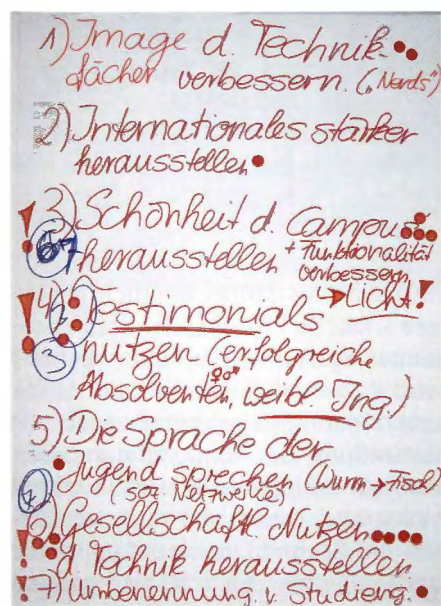 1) Image d. Technik-
fächer verbessern. („Nerds“)
2) Internationales stärker
herausstellen
! 3) Schönheit d. Campus
67 herausstellen + Funktionalität
verbessern
↳ Licht!
! 4) Testimonials
3 nutzen (erfolgreiche
Absolventen, ♀♂ weibl. Ing.)
5) Die Sprache der
Jugend sprechen (Wurm → Fisch)
(soz. Netzwerke)
! 6) Gesellschaftl. Nutzen
d. Technik herausstellen
! 7) Umbenennung v. Studieng.